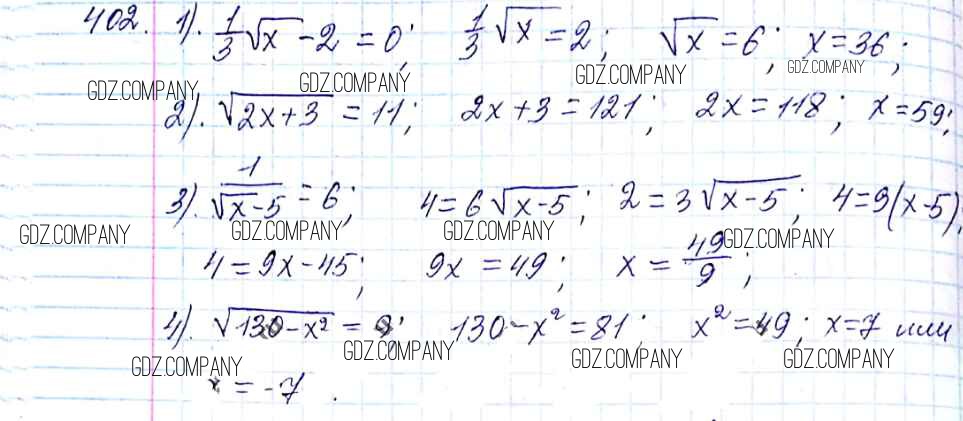 402. 1). 1/3 √x - 2 = 0; 1/3 √x = 2; √x = 6; x = 36;
GDZ.COMPANY GDZ.COMPANY GDZ.COMPANY GDZ.COMPANY
2). √(2x+3) = 11; 2x+3 = 121; 2x = 118; x = 59;
3). 4/√(x-5) = 6; 4 = 6√(x-5); 2 = 3√(x-5); 4 = 9(x-5);
GDZ.COMPANY GDZ.COMPANY GDZ.COMPANY GDZ.COMPANY
4 = 9x - 45; 9x = 49; x = 49/9;
4). √(130-x²) = 9; 130-x² = 81; x² = 49; x = 7 или
GDZ.COMPANY GDZ.COMPANY GDZ.COMPANY GDZ.COMPANY
x = -7.